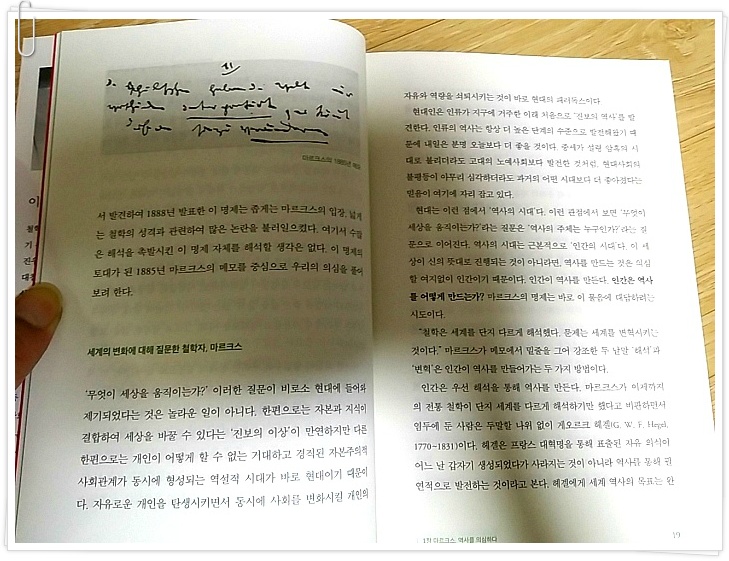 11
마르크스의 1885년 메모
서 발견하여 1888년 발표한 이 명제는 좁게는 마르크스의 입장, 넓게
는 철학의 성격과 관련하여 많은 논란을 불러일으켰다. 여기서 수많
은 해석을 촉발시킨 이 명제 자체를 해석할 생각은 없다. 이 명제의
토대가 된 1885년 마르크스의 메모를 중심으로 우리의 의심을 풀어
보려 한다.
세계의 변화에 대해 질문한 철학자, 마르크스
'무엇이 세상을 움직이는가?' 이러한 질문이 비로소 현대에 들어와
제기되었다는 것은 놀라운 일이 아니다. 한편으로는 자본과 지식이
결합하여 세상을 바꿀 수 있다는 '진보의 이상'이 만연하지만 다른
한편으로는 개인이 어떻게 할 수 없는 기대하고 경직된 자본주의적
사회관계가 동시에 형성되는 역설적 시대가 바로 현대이기 때문이
다. 자유로운 개인을 탄생시키면서 동시에 사회를 변화시킬 개인의
자유와 역량을 쇠퇴시키는 것이 바로 현대의 패러독스이다.
현대인은 인류가 지구에 거주한 이래 처음으로 '진보의 역사'를 발
견한다. 인류의 역사는 항상 더 높은 단계의 수준으로 발전해왔기 때
문에 내일은 분명 오늘보다 더 좋을 것이다. 중세가 설령 암흑의 시
대로 불리더라도 고대의 노예사회보다 발전한 것처럼, 현대사회의
불평등이 아무리 심각하더라도 과거의 어떤 시대보다 더 좋아졌다는
믿음이 여기에 자리 잡고 있다.
현대는 이런 점에서 '역사의 시대'다. 이런 관점에서 보면 '무엇이
세상을 움직이는가?'라는 질문은 '역사의 주체는 누구인가?'라는 질
문으로 이어진다. 역사의 시대는 근본적으로 '인간의 시대'다. 이 세
상이 신의 뜻대로 진행되는 것이 아니라면, 역사를 만드는 것은 의심
할 여지없이 인간이기 때문이다. 인간이 역사를 만든다. 인간은 역사
를 어떻게 만드는가? 마르크스의 명제는 바로 이 물음에 대답하려는
시도이다.
"철학은 세계를 단지 다르게 해석했다. 문제는 세계를 변혁시키는
것이다." 마르크스가 메모에서 밑줄을 그어 강조한 두 낱말 '해석'과
'변혁'은 인간이 역사를 만들어가는 두 가지 방법이다.
인간은 우선 해석을 통해 역사를 만든다. 마르크스가 이제까지
의 전통 철학이 단지 세계를 다르게 해석하기만 했다고 비판하면서
염두에 둔 사람은 두말할 나위 없이 게오르크 헤겔(G. W. F. Hegel,
1770~1831)이다. 헤겔은 프랑스 대혁명을 통해 표출된 자유 의식이
어느 날 갑자기 생성되었다가 사라지는 것이 아니라 역사를 통해 필
연적으로 발전하는 것이라고 본다. 헤겔에게 세계 역사의 목표는 완
1장 마르크스, 역사를 의심하다
19